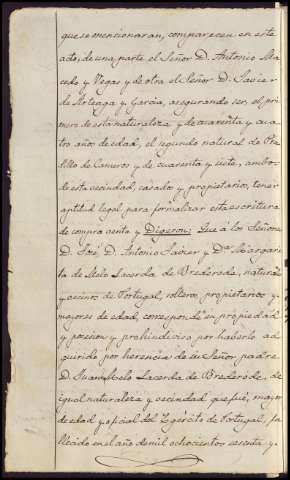 que se mencionaran, comparecen en este
acto; de una parte el Señor D. Antonio Ma-
cedo y Vegas y de otra el Señor D. Javier
de Arteaga y Garcia, asegurando ser, el pri-
mero de esta naturaleza y de cuarenta y cua-
tro años de edad, el segundo natural de
de Cameros y de cuarenta y siete, ambos
de esta vecindad, casados y propietarios, tener
aptitud legal para formalizar esta escritura
de compra venta y Digeron: Que á los Señores
D. José, D. Antonio Javier y Dª Margari-
ta de Melo Lacerda de Brederode, naturales
y vecinos de Portugal, solteros, propietarios y
mayores de edad, corresponde en propiedad
y posesion y proindiviso por haberlo ad-
quirido por herencia de su Señor padre
D. Juan Melo Lacerda de Brederode, de
igual naturaleza y vecindad que fué, mayor
de edad y oficial del Egército de Portugal, fa-
llecido en el año de mil ochocientos sesenta y